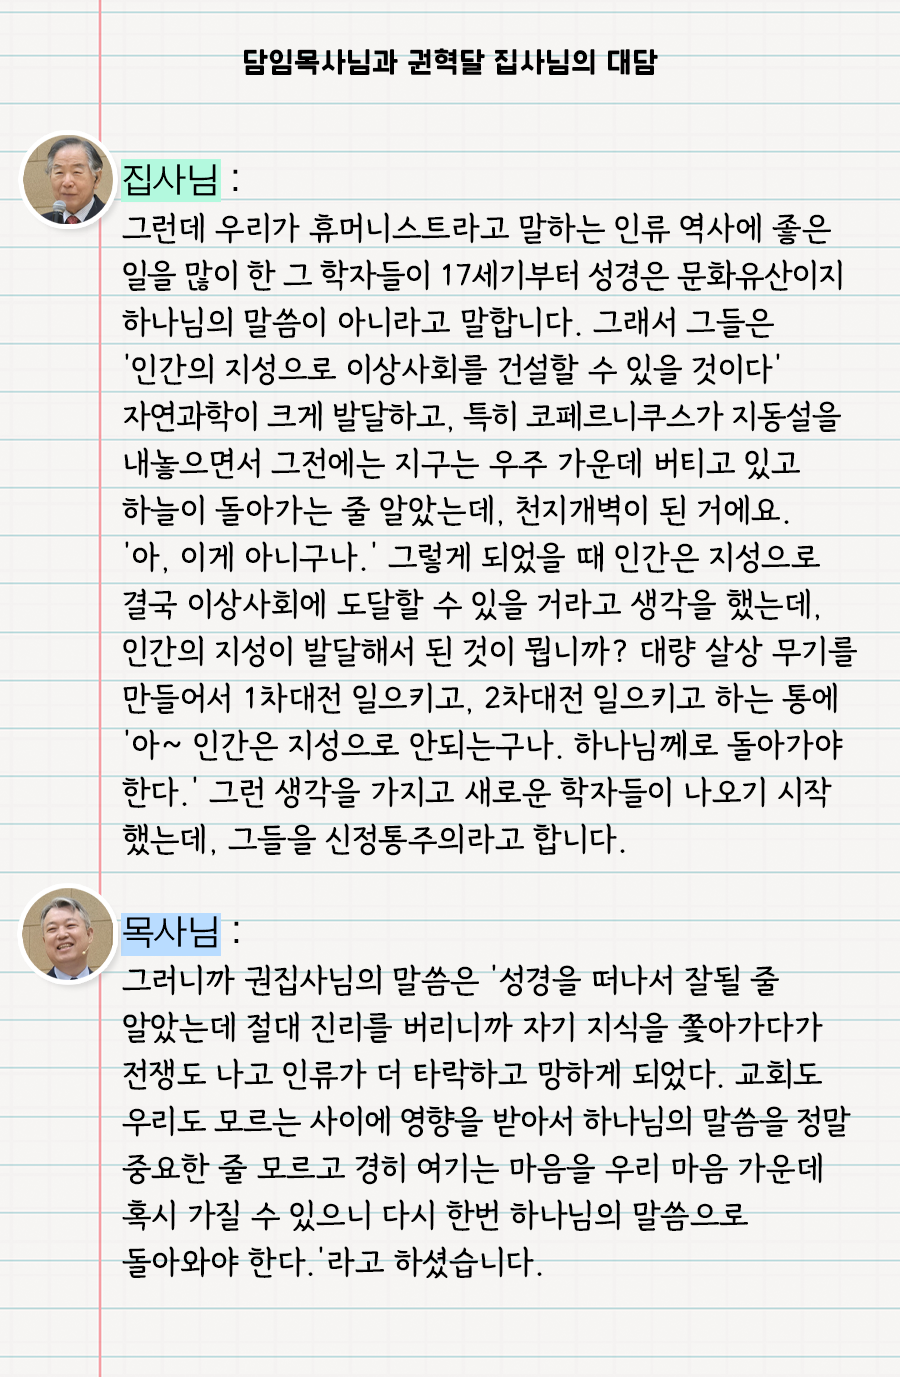 담임목사님과 권혁달 집사님의 대담
집사님 :
그런데 우리가 휴머니스트라고 말하는 인류 역사에 좋은
일을 많이 한 그 학자들이 17세기부터 성경은 문화유산이지
하나님의 말씀이 아니라고 말합니다. 그래서 그들은
'인간의 지성으로 이상사회를 건설할 수 있을 것이다'
자연과학이 크게 발달하고, 특히 코페르니쿠스가 지동설을
내놓으면서 그전에는 지구는 우주 가운데 버티고 있고
하늘이 돌아가는 줄 알았는데, 천지개벽이 된 거에요.
'아, 이게 아니구나.' 그렇게 되었을 때 인간은 지성으로
결국 이상사회에 도달할 수 있을 거라고 생각을 했는데,
인간의 지성이 발달해서 된 것이 뭡니까? 대량 살상 무기를
만들어서 1차대전 일으키고, 2차대전 일으키고 하는 통에
'아~ 인간은 지성으로 안되는구나. 하나님께로 돌아가야
한다.' 그런 생각을 가지고 새로운 학자들이 나오기 시작
했는데, 그들을 신정통주의라고 합니다.
목사님 :
그러니까 권집사님의 말씀은 '성경을 떠나서 잘될 줄
알았는데 절대 진리를 버리니까 자기 지식을 쫓아가다가
전쟁도 나고 인류가 더 타락하고 망하게 되었다. 교회도
우리도 모르는 사이에 영향을 받아서 하나님의 말씀을 정말
중요한 줄 모르고 경히 여기는 마음을 우리 마음 가운데
혹시 가질 수 있으니 다시 한번 하나님의 말씀으로
돌아와야 한다.'라고 하셨습니다.